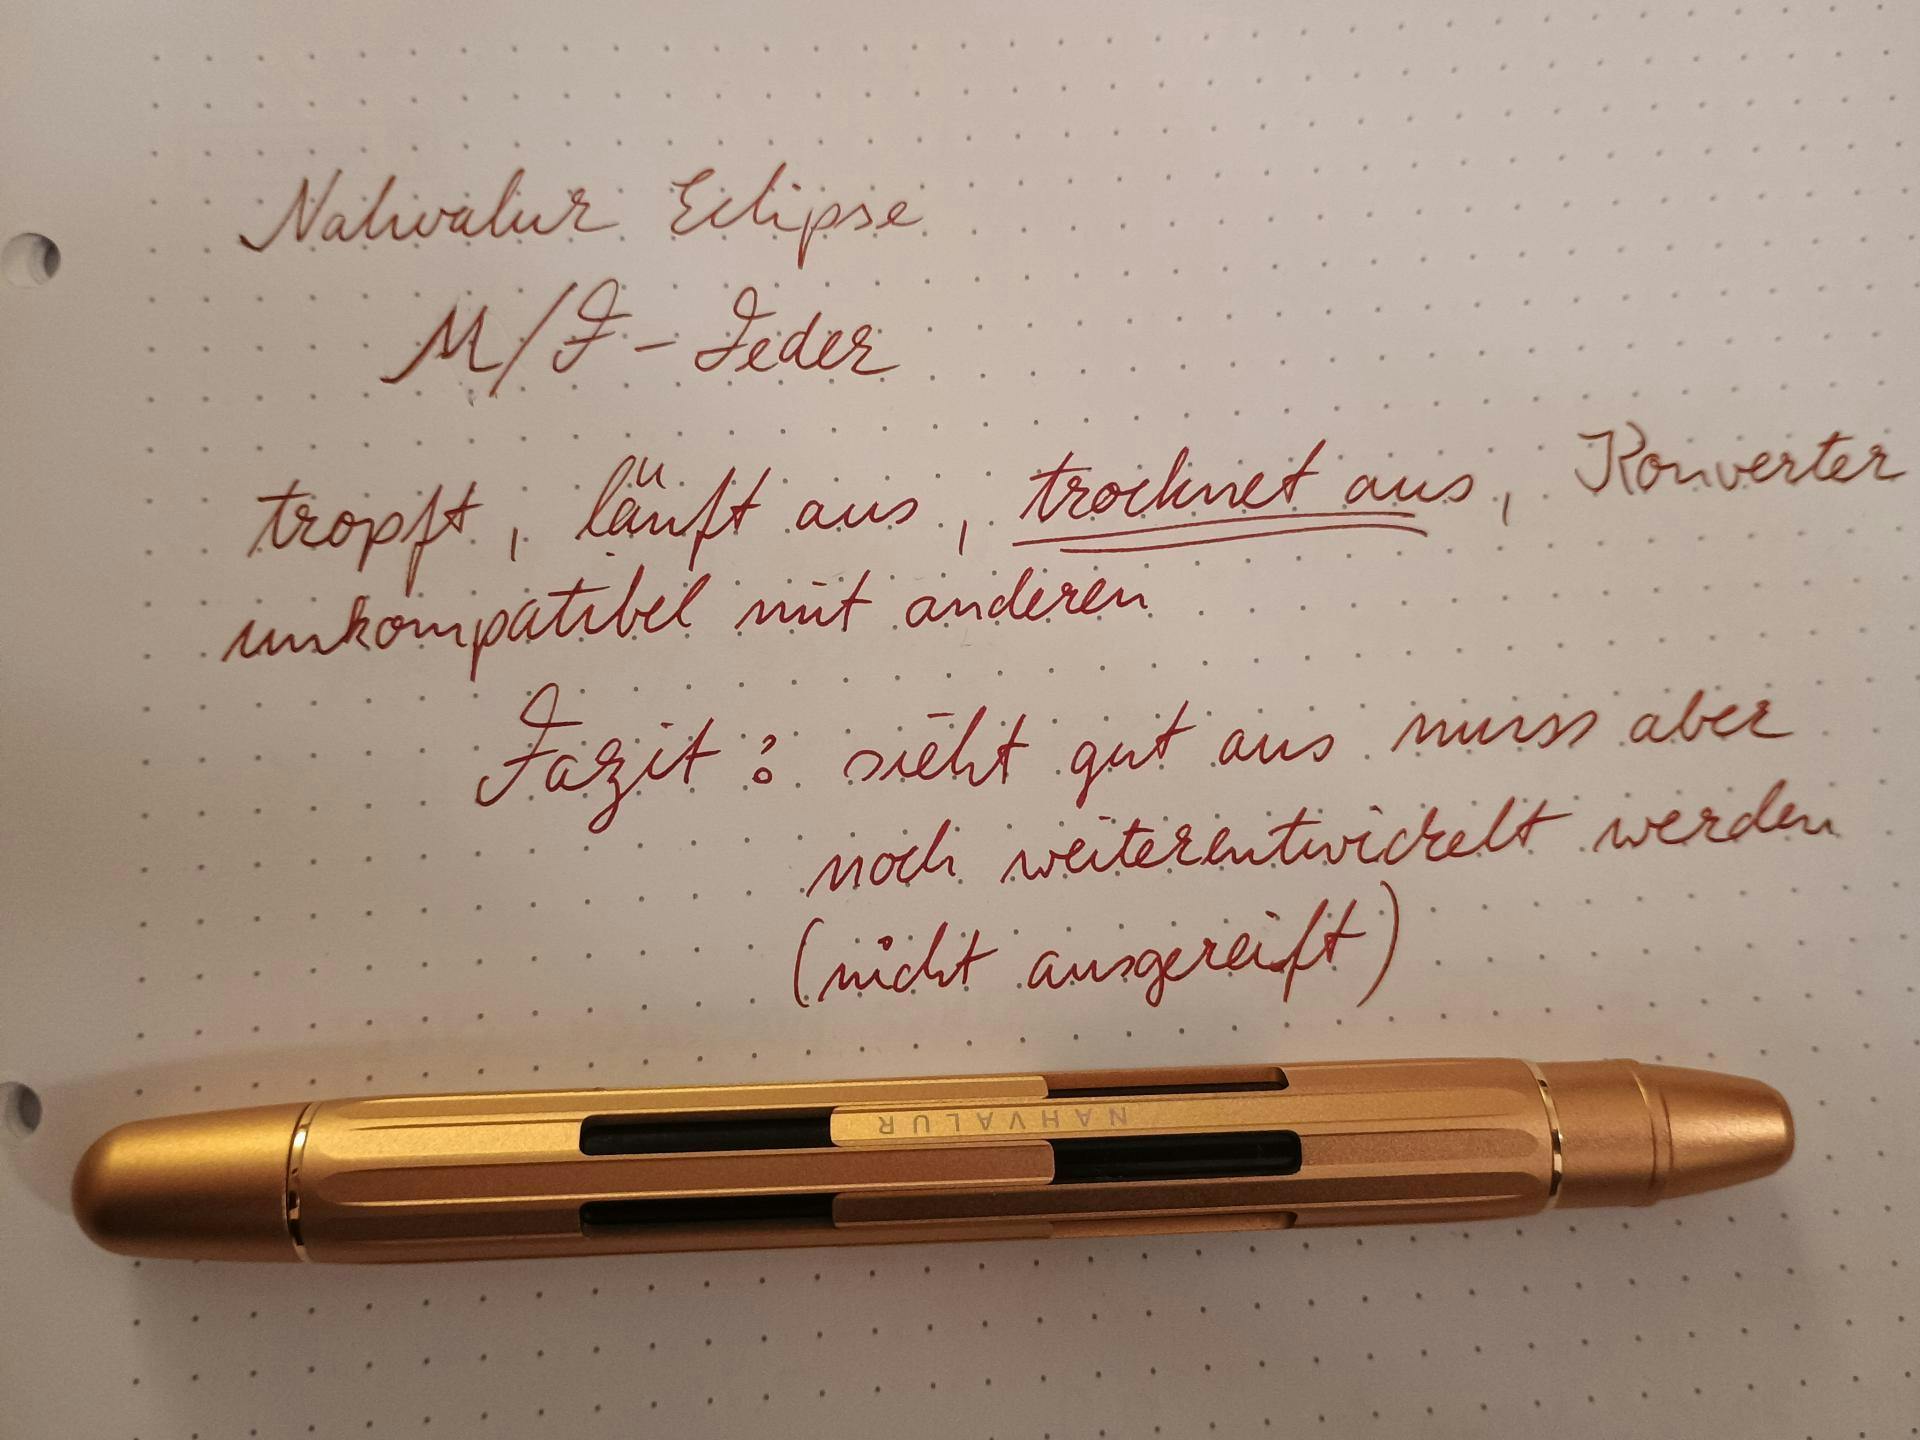 Nahvalur Eclipse
M/F-Feder
tropft, läuft aus, trocknet aus, Konverter
unkompatibel mit anderen
Fazit: sieht gut aus muss aber
noch weiterentwickelt werden
(nicht ausgereift)
NAHVALUR